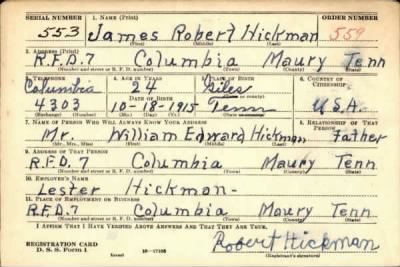 SERIAL NUMBER 1. NAME (Print) ORDER NUMBER
553 James Robert Hickman 559
(First) (Middle) (Last)
2. ADDRESS (Print)
R.F.D.7 Columbia Maury Tenn
(Number and street or R. F. D. number) (Town) (County) (State)
3. TELEPHONE 4. AGE IN YEARS 5. PLACE OF BIRTH 6. COUNTRY OF CITIZENSHIP
Columbia 24 Giles
DATE OF BIRTH (Town or county)
4303 10-18-1915 Tenn U.S.A.
(Exchange) (Number) (Mo.) (Day) (Yr.) (State or country)
7. NAME OF PERSON WHO WILL ALWAYS KNOW YOUR ADDRESS 8. RELATIONSHIP OF THAT PERSON
Mr. William Edward Hickman Father
(Mr., Mrs., Miss) (First) (Middle) (Last)
9. ADDRESS OF THAT PERSON
R.F.D. 7 Columbia Maury Tenn
(Number and street or R. F. D. number) (Town) (County) (State)
10. EMPLOYER'S NAME
Lester Hickman-
11. PLACE OF EMPLOYMENT OR BUSINESS
R.F.D. 7 Columbia Maury Tenn.
(Number and street or R. F. D. number) (Town) (County) (State)
I AFFIRM THAT I HAVE VERIFIED ABOVE ANSWERS AND THAT THEY ARE TRUE.
Robert Hickman
REGISTRATION CARD
D. S. S. Form 1 (Registrant's signature)